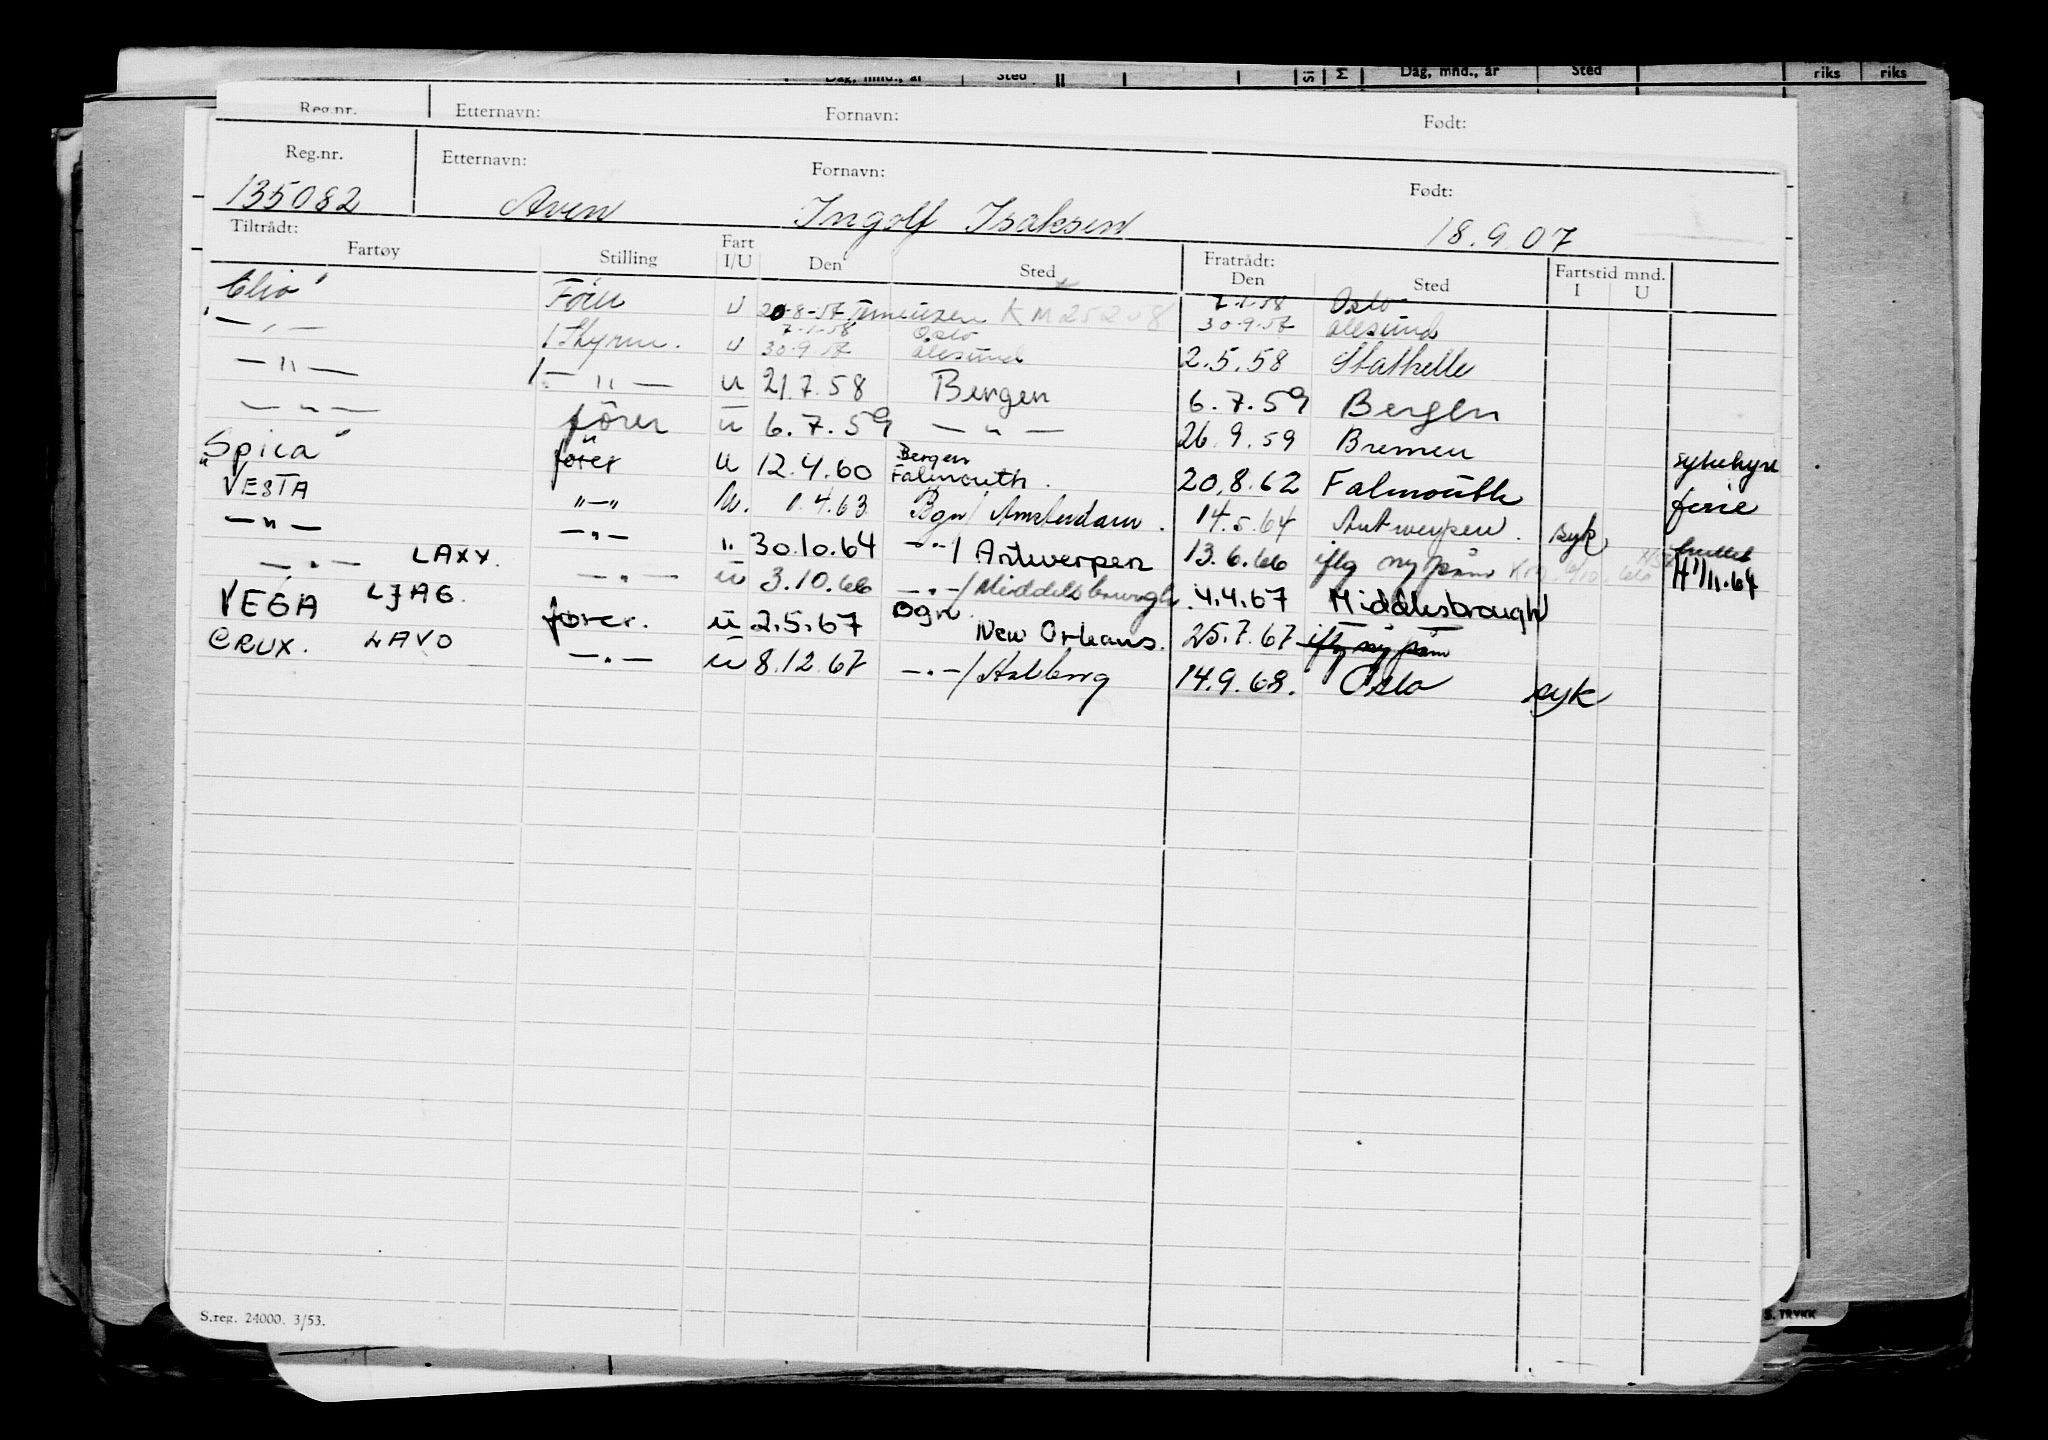 Dag, mnd., år Sted Si M Dag, mnd., år Sted riks riks
Reg.nr. Etternavn: Fornavn: Født:
Reg.nr. Etternavn: Fornavn: Født:
135082 Aven Ingolf Isaksen 18.9.07
Tiltrådt: Fratrådt: Fartstid mnd.
Fartøy Stilling Fart I/U Den Sted Den Sted I U
"Clio" Förer U 20-8-57 KM25208 7.1.58 Oslo
30.9.57 Ålesund
— " — 1 Styrm. U 7.1.58 Oslo
30.9.57 Ålesund 2.5.58 Stathelle
— " — 1 — " — U 21.7.58 Bergen 6.7.59 Bergen
— " — förer U 6.7.59 — " — 26.9.59 Bremen sykehyre
"Spica" förer U 12.4.60 Bergen
Falmouth. 20.8.62 Falmouth ferie
VESTA "—" U. 1.4.63 Bgn/ Amsterdam. 14.5.64 Antwerpen. syk
— " — — " — " 30.10.64 — " —/ Antwerpen 13.6.66 iflg ny påm H 1/11.64
— " — LAXX. — " — U 3.10.66 — " —/ Middelsbourgh. 4.4.67 Middlesbrough
VEGA LJAG. förer. U 2.5.67 Bgn New Orleans. 25.7.67 iflg ny påm
CRUX. LAVO — " — U 8.12.67 — " —/ Aalborg 14.9.68. Oslo syk
S.reg. 24000. 3/53.
S. TRYKK